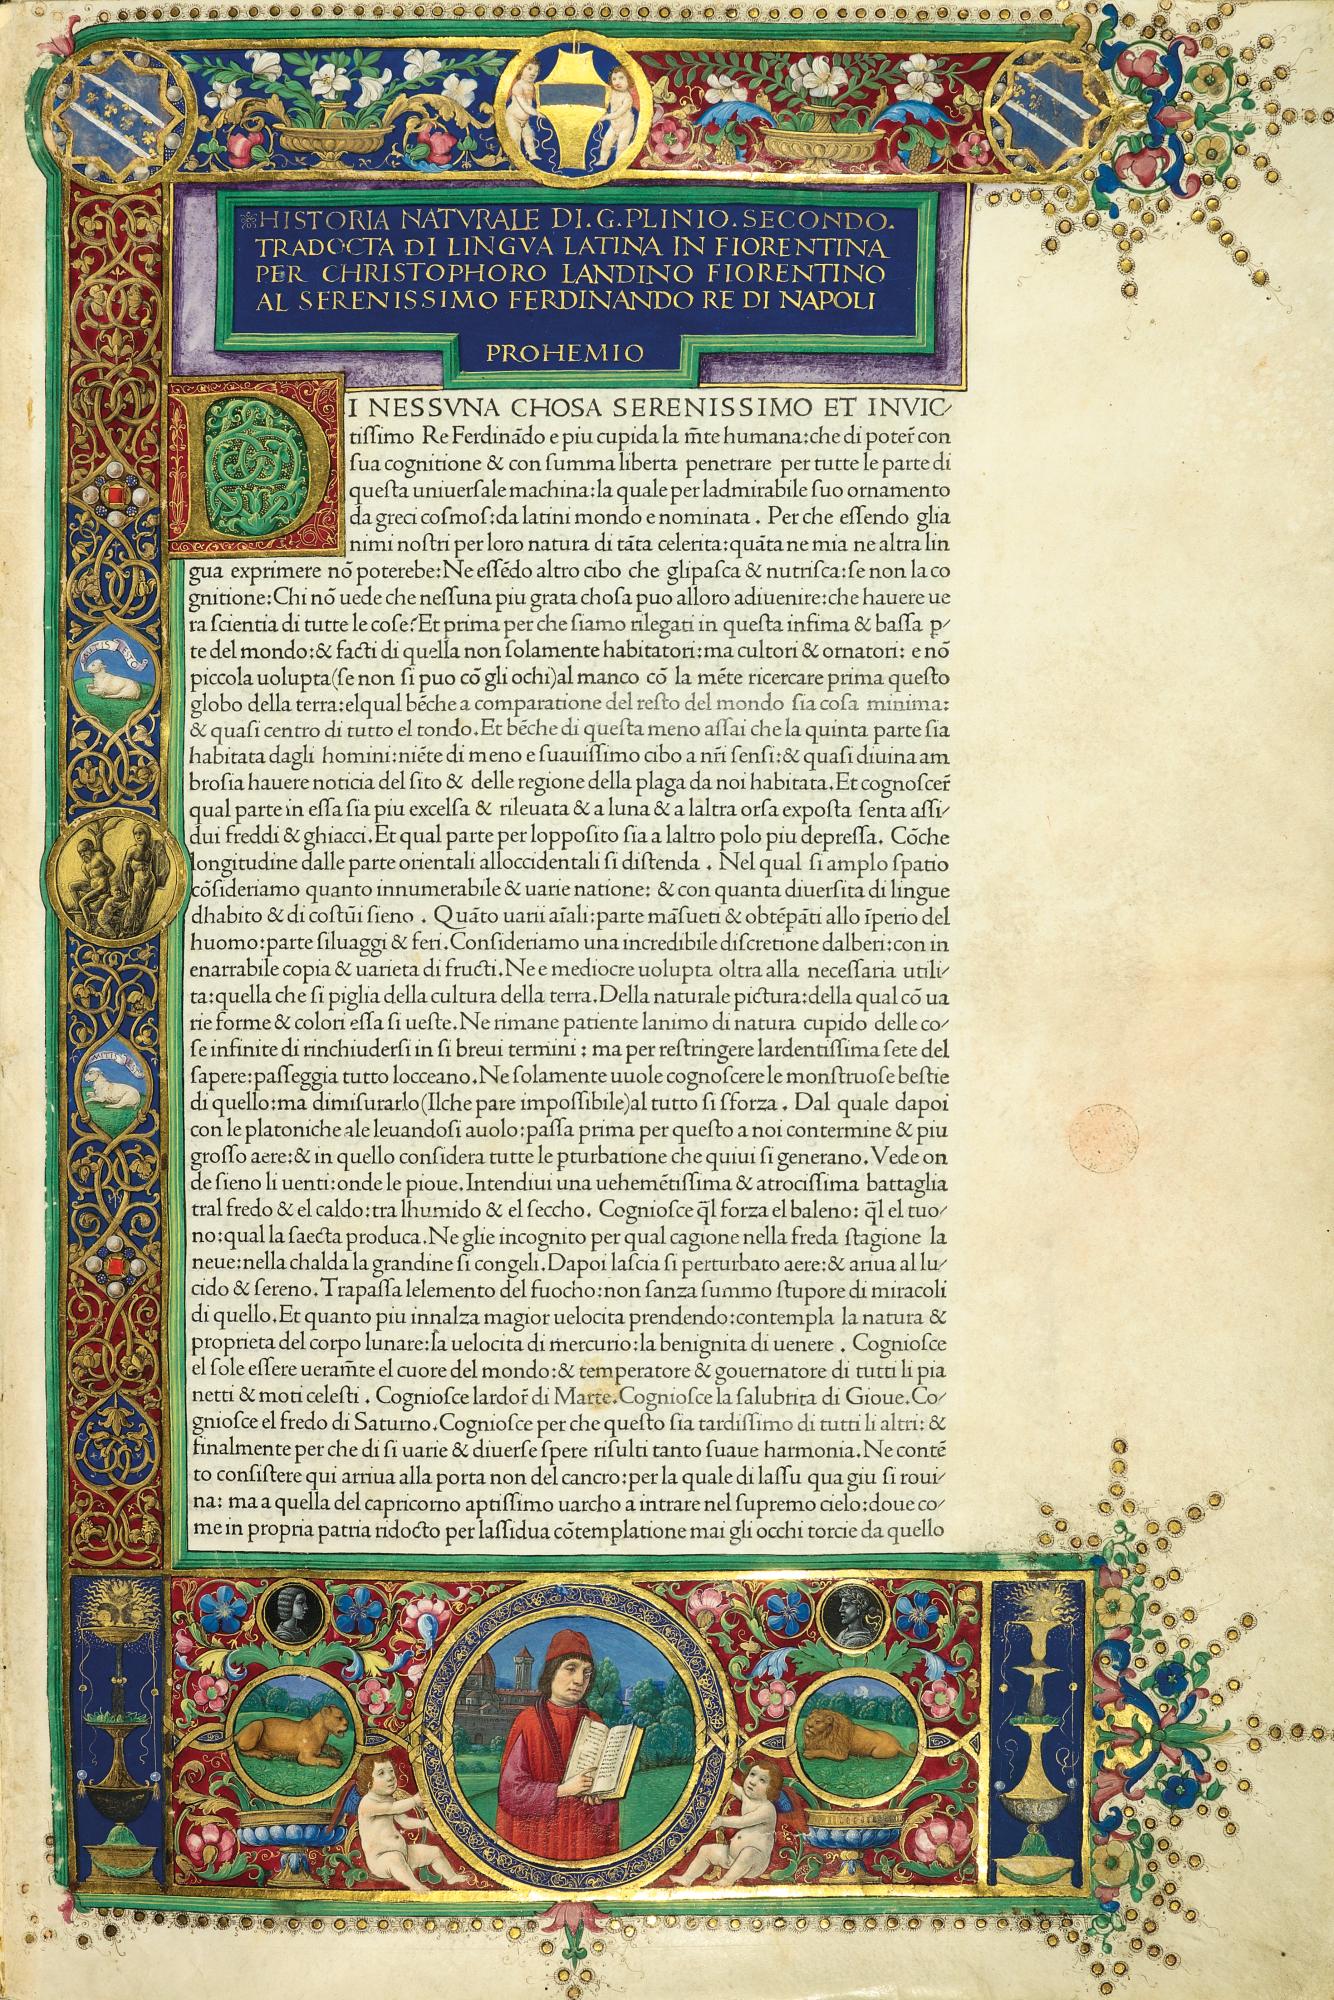 HISTORIA NATVRALE DI.G.PLINIO.SECONDO.
TRADOCTA DI LINGVA LATINA IN FIORENTINA
PER CHRISTOPHORO LANDINO FIORENTINO
AL SERENISSIMO FERDINANDO RE DI NAPOLI
PROHEMIO
DI NESSVNA CHOSA SERENISSIMO ET INVIC⸗
tiſſimo Re Ferdinādo e piu cupida la m̄te humana:che di poter̄ con
ſua cognitione & con ſumma liberta penetrare per tutte le parte di
queſta uniuerſale machina:la quale per ladmirabile ſuo ornamento
da greci coſmoſ:da latini mondo e nominata . Per che eſſendo glia
nimi noſtri per loro natura di tāta celerita:quāta ne mia ne altra lin
gua exprimere nō poterebe:Ne eſſēdo altro cibo che glipaſca & nutriſca:ſe non la co
gnitione:Chi nō uede che neſſuna piu grata choſa puo alloro adiuenire:che hauere ue
ra ſcientia di tutte le coſe?Et prima per che ſiamo rilegati in queſta infima & baſſa p⸗
te del mondo:& facti di quella non ſolamente habitatori:ma cultori & ornatori: e nō
piccola uolupta(ſe non ſi puo cō gli ochi)al manco cō la mēte ricercare prima queſto
globo della terra:elqual bēche a comparatione del reſto del mondo ſia coſa minima:
& quaſi centro di tutto el tondo.Et bēche di queſta meno aſſai che la quinta parte ſia
habitata dagli homini:niēte di meno e ſuauiſſimo cibo a nr̄i ſenſi:& quaſi diuina am
broſia hauere noticia del ſito & delle regione della plaga da noi habitata.Et cognoſcer̄
qual parte in eſſa ſia piu excelſa & rileuata & a luna & a laltra orſa expoſta ſenta aſſi⸗
dui freddi & ghiacci.Et qual parte per loppoſito ſia a laltro polo piu depreſſa. Cōche
longitudine dalle parte orientali alloccidentali ſi diſtenda . Nel qual ſi amplo ſpatio
cōſideriamo quanto innumerabile & uarie natione: & con quanta diuerſita di lingue
dhabito & di coſtūi ſieno . Quāto uarii aīali:parte māſueti & obtēpāti allo īperio del
huomo:parte ſiluaggi & feri.Conſideriamo una incredibile diſcretione dalberi:con in
enarrabile copia & uarieta di fructi.Ne e mediocre uolupta oltra alla neceſſaria utili⸗
ta:quella che ſi piglia della cultura della terra.Della naturale pictura:della qual cō ua
rie forme & colori eſſa ſi ueſte.Ne rimane patiente lanimo di natura cupido delle co⸗
ſe infinite di rinchiuderſi in ſi breui termini : ma per reſtringere lardentiſſima ſete del
ſapere:paſſeggia tutto locceano.Ne ſolamente uuole cognoſcere le monſtruoſe beſtie
di quello:ma dimiſurarlo(Ilche pare impoſſibile)al tutto ſi ſforza . Dal quale dapoi
con le platoniche ale leuandoſi auolo:paſſa prima per queſto a noi contermine & piu
groſſo aere:& in quello conſidera tutte le pturbatione che quiui ſi generano.Vede on
de ſieno li uenti:onde le pioue.Intendiui una uehemētiſſima & atrociſſima battaglia
tral fredo & el caldo:tra lhumido & el ſeccho. Cognioſce q̄l forza el baleno: q̄l el tuo⸗
no:qual la ſaecta produca.Ne glie incognito per qual cagione nella freda ſtagione la
neue:nella chalda la grandine ſi congeli.Dapoi laſcia ſi perturbato aere:& ariua al lu⸗
cido & ſereno.Trapaſſa lelemento del fuocho:non ſanza ſummo ſtupore di miracoli
di quello.Et quanto piu innalza magior uelocita prendendo:contempla la natura &
proprieta del corpo lunare:la uelocita di mercurio:la benignita di uenere . Cognioſce
el ſole eſſere ueram̄te el cuore del mondo:& temperatore & gouernatore di tutti li pia
netti & moti celeſti . Cognioſce lardor̄ di Marte.Cognioſce la ſalubrita di Gioue.Co⸗
gnioſce el fredo di Saturno.Cognioſce per che queſto ſia tardiſſimo di tutti li altri: &
finalmente per che di ſi uarie & diuerſe ſpere riſulti tanto ſuaue harmonia.Ne contē
to conſiſtere qui arriua alla porta non del cancro:per la quale di laſſu qua giu ſi roui⸗
na: ma a quella del capricorno aptiſſimo uarcho a intrare nel ſupremo cielo:doue co⸗
me in propria patria ridocto per laſſidua cōtemplatione mai gli occhi torcie da quello
MITIS ESTO